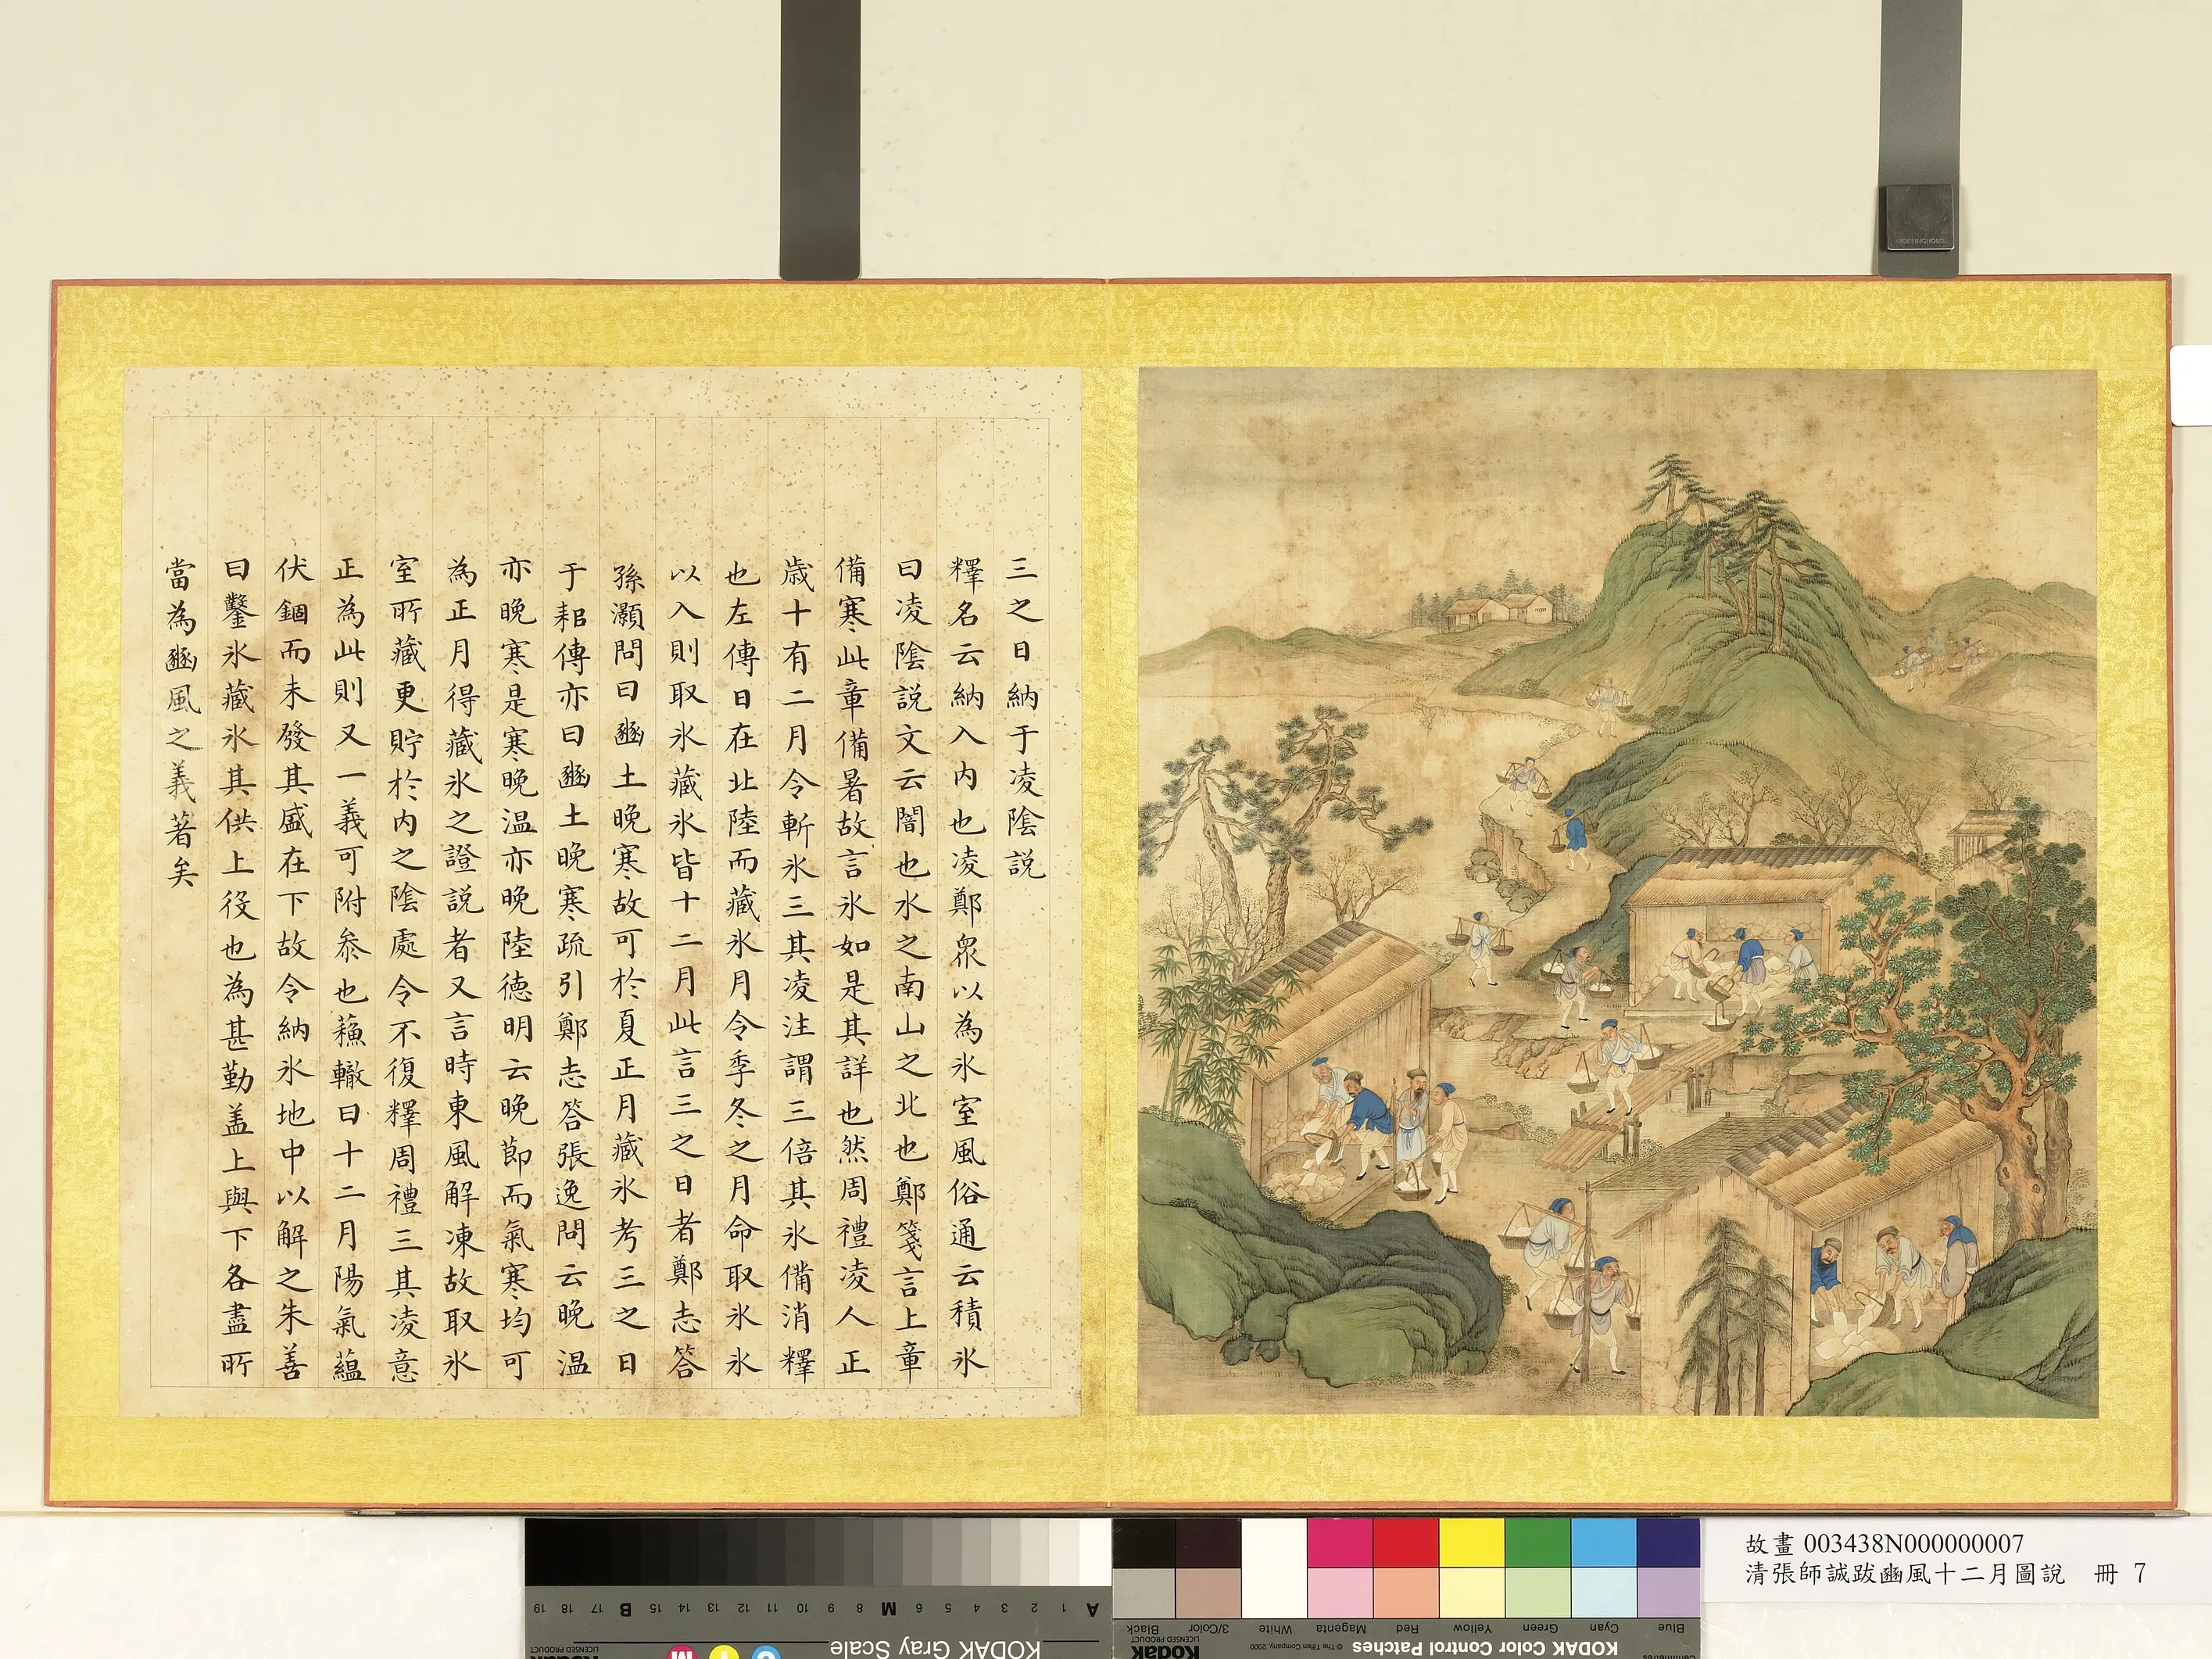 三之日納于凌陰説
釋名云納入内也凌鄭衆以為氷室風俗通云積氷
曰凌陰説文云闇也水之南山之北也鄭箋言上章
備寒此章備暑故言氷如是其詳也然周禮凌人正
歳十有二月令斬氷三其凌注謂三倍其氷備消釋
也左傳日在北陸而藏氷月令季冬之月命取氷氷
以入則取氷藏氷皆十二月此言三之日者鄭志答
孫灝問曰豳土晚寒故可於夏正月藏氷考三之日
于耜傳亦曰豳土晚寒疏引鄭志答張逸問云晚温
亦晚寒是寒晚温亦晚陸德明云晚節而氣寒均可
為正月得藏氷之證説者又言時東風解凍故取氷
室所藏更貯於内之陰處令不復釋周禮三其凌意
正為此則又一義可附叅也蘓轍曰十二月陽氣蘊
伏錮而未發其盛在下故令納氷地中以解之朱善
曰鑿氷藏氷其供上役也為甚勤盖上與下各盡所
當為豳風之義著矣
故畫 003438N000000007
清張師誠跋豳風十二月圖說 冊 7
KODAK Gray Scale
KODAK Color Control Patches
© The Tiffen Company, 2000
Kodak
LICENSED PRODUCT
Blue Cyan Green Yellow Red Magenta White 3/Color Black
A 1 2 3 4 5 6 M 8 9 10 11 12 13 14 15 B 17 18 19